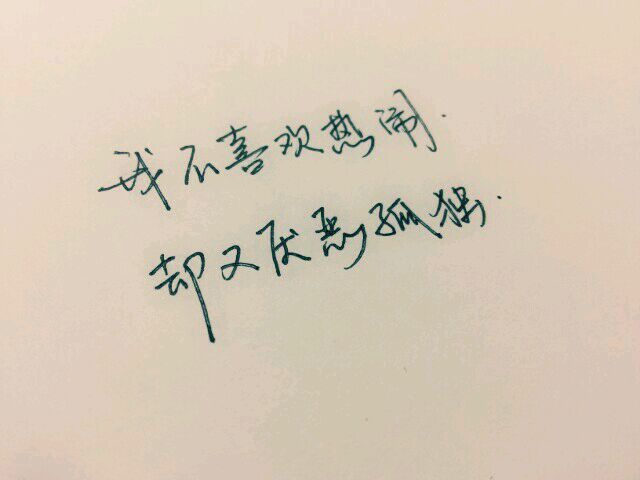 我不喜欢热闹.
却又厌恶孤独.